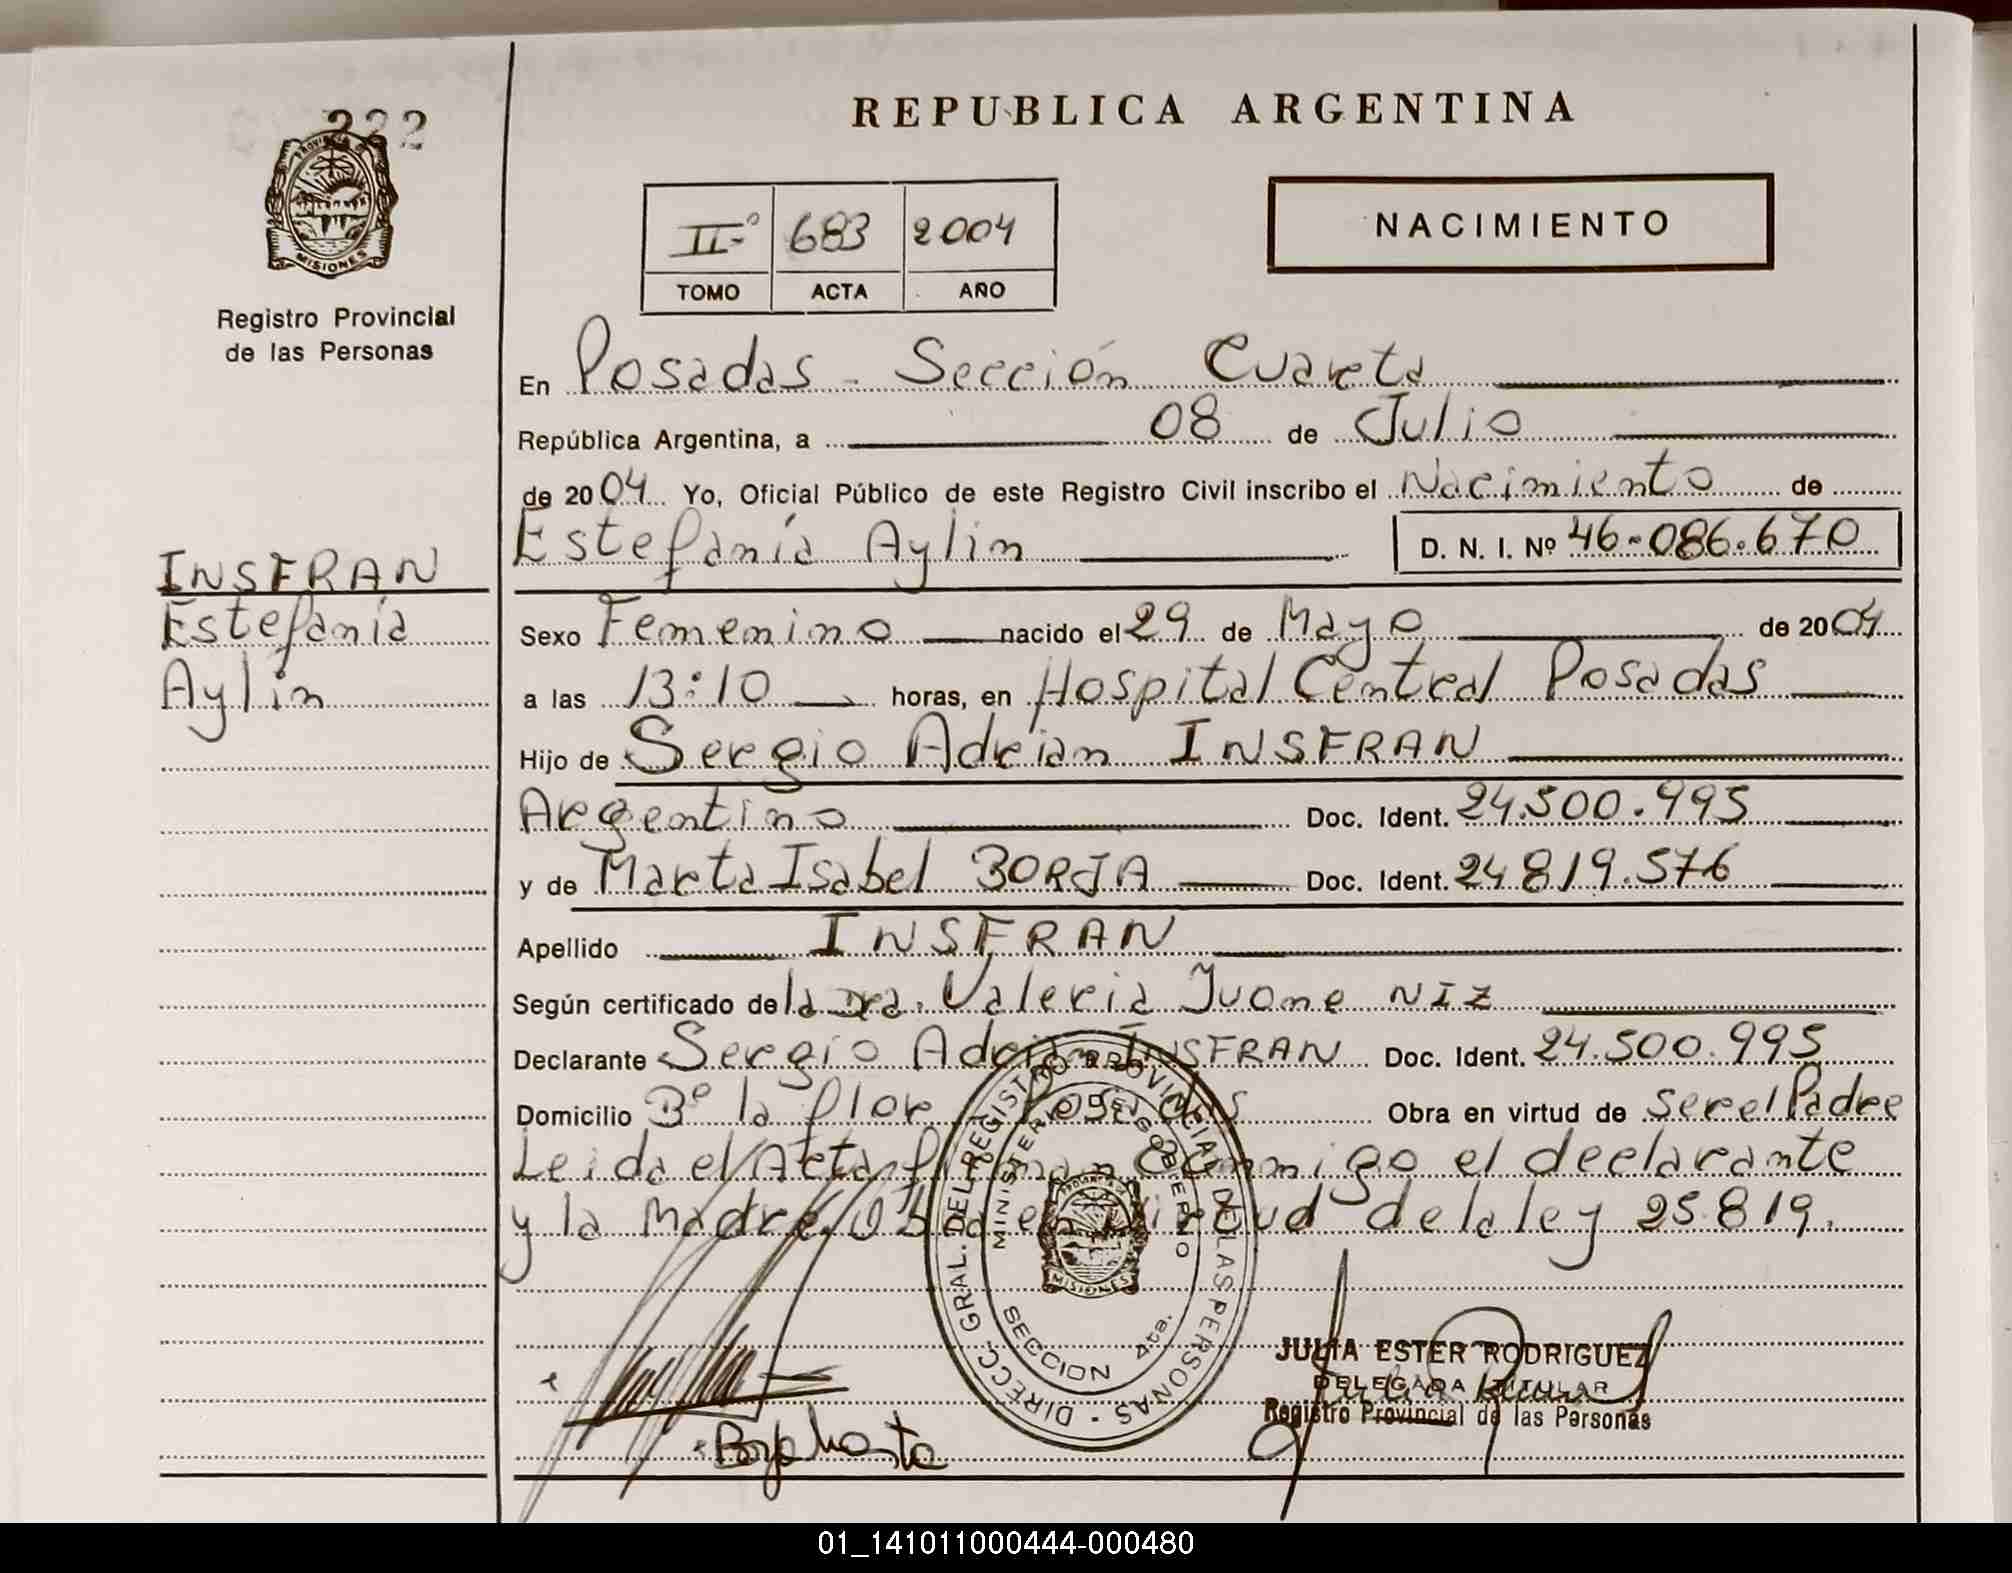 222
PROVINCIA DE
MISIONES
Registro Provincial
de las Personas
INSFRAN
Estefanía
Aylin
REPUBLICA ARGENTINA
NACIMIENTO
II-º 683 2004
TOMO ACTA AÑO
En Posadas - Sección Cuarta
República Argentina, a 08 de Julio
de 2004 Yo, Oficial Público de este Registro Civil inscribo el Nacimiento de
Estefanía Aylin D. N. I. Nº 46-086.670
Sexo Femenino nacido el 29 de Mayo de 2004
a las 13:10 horas, en Hospital Central Posadas
Hijo de Sergio Adrian INSFRAN
Argentino Doc. Ident. 24.500.995
y de Marta Isabel BORJA Doc. Ident. 24819.576
Apellido INSFRAN
Según certificado de la Dra. Valeria Ivone NIZ
Declarante Sergio Adrián INSFRAN Doc. Ident. 24.500.995
Domicilio Bº la flor Posadas Obra en virtud de ser el Padre
Leida el Acta firman conmigo el declarante
y la Madre. Obra en virtud de la ley 25.819.
DIRECC. GRAL. DEL REGISTRO PROVINCIAL DE LAS PERSONAS -
MINISTERIO DE GOBIERNO
MISIONES
SECCION 4ta.
Borja Marta
JULIA ESTER RODRIGUEZ
DELEGADA TITULAR
Registro Provincial de las Personas
01_141011000444-000480